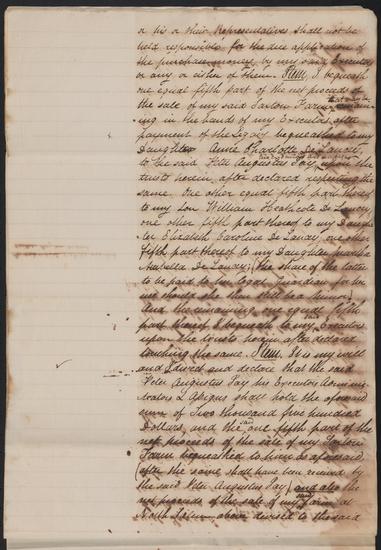 or his or their Representatives shall not be
held responsible for the due application of
the purchase money by my said Executors
or any or either of them. Item, I bequeath
one equal fifth part of the net proceeds of
the sale of my said Saxton Farm
that may be
ing in the hands of my Executors after
payment of the Legacy bequeathed to my
Daughter Anne Charlotte De Lancey,
to the said Peter Augustus Jay, upon the
trusts herein after declared respecting the
same. One other equal fifth part thereof
to my son William Heathcote De Lancey
one other fifth part thereof to my Daugh
ter Elizabeth Caroline De Lancey, one other
fifth part thereof to my Daughter Martha
Arabella De Lancey, (the share of the latter
to be paid to her legal guardian for her
use should she then still be a minor)
And the remaining one equal fifth
part thereof I bequeath to my said Executors
upon the trusts herein after declared
touching the same. Item. It is my will
and I direct and declare that the said
Peter Augustus Jay his Executors Admini
strators & Assigns shall hold the aforesaid
sum of Two thousand five hundred
Dollars, and the said one fifth part of the
net proceeds of the sale of my Saxton
Farm bequeathed to him as aforesaid
(after the same shall have been received by
the said Peter Augustus Jay) and also the
net proceeds of the sale of my said Farm at
North above devised to the said